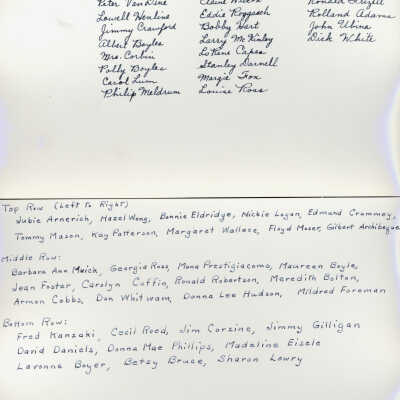 Peter Van Dine
Lowell Henline
Jimmy Crawford
Albert Boyles
Mrs. Corbin
Polly Boyles
Carol Lum
Philip Meldrum
Eddie Roggasch
Bobby Hart
Larry McKinley
LoRene Capes
Stanley Darnell
Margie Fox
Louise Ross
Rolland Adams
John Ubina
Dick White
Top Row (Left to Right)
Jubie Arnerich, Hazel Wong, Bonnie Eldridge, Mickie Logan, Edmund Crammey,
Tommy Mason, Kay Patterson, Margaret Wallace, Floyd Moser, Gilbert Archibeque
Middle Row:
Barbara Ann Mwich, Georgia Ross, Mona Prestigiacomo, Maureen Boyle,
Jean Foster, Carolyn Coffin, Ronald Robertson, Meredith Bolton,
Armon Cobbs, Don Whitwam, Donna Lee Hudson, Mildred Foreman
Bottom Row:
Fred Kanzaki, Cecil Reed, Jim Corzine, Jimmy Gilligan
David Daniels, Donna Mae Phillips, Madeline Eisele
Lavonne Boyer, Betsy Bruce, Sharon Lowry